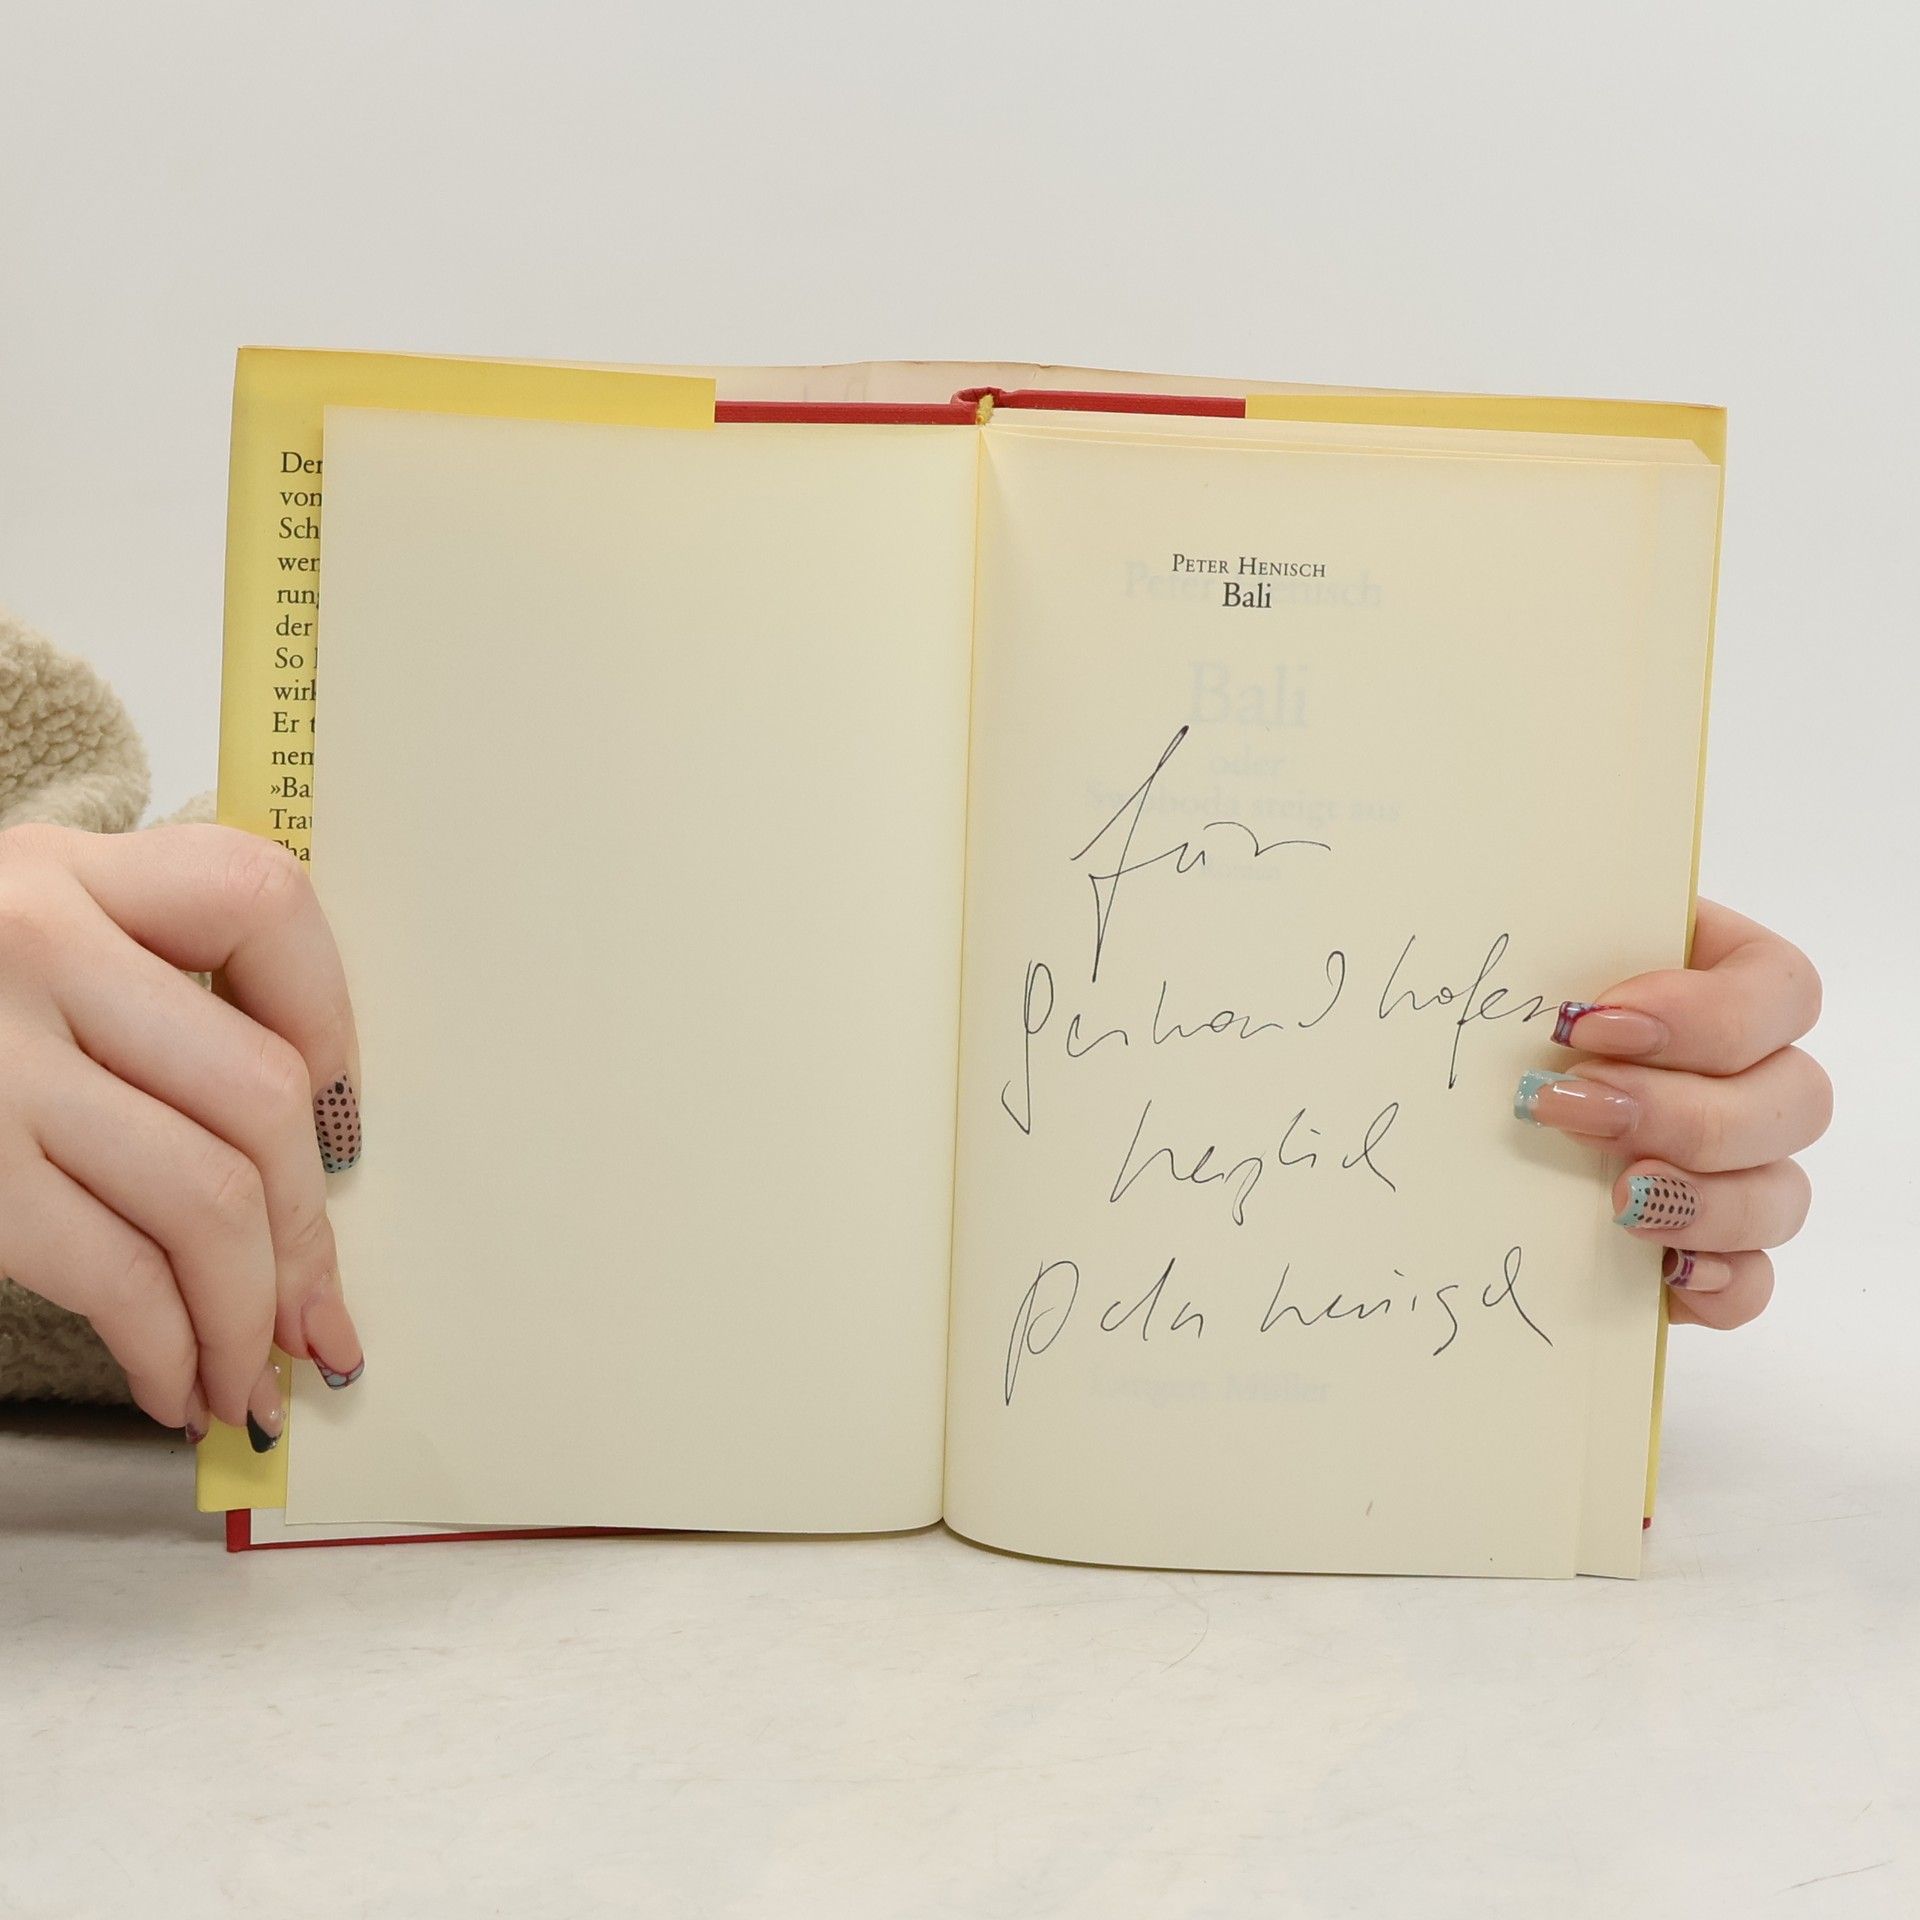 Der
von
Sch
wer
rung
der
So
wirk
Er t
nem
»Bal
Trau
Pha
PETER HENISCH
Bali
Peter Henisch
Bali
oder
Swoboda steigt aus
Roman
für
Gerhard Hofer
herzlich
Peter Henisch
Langen Müller